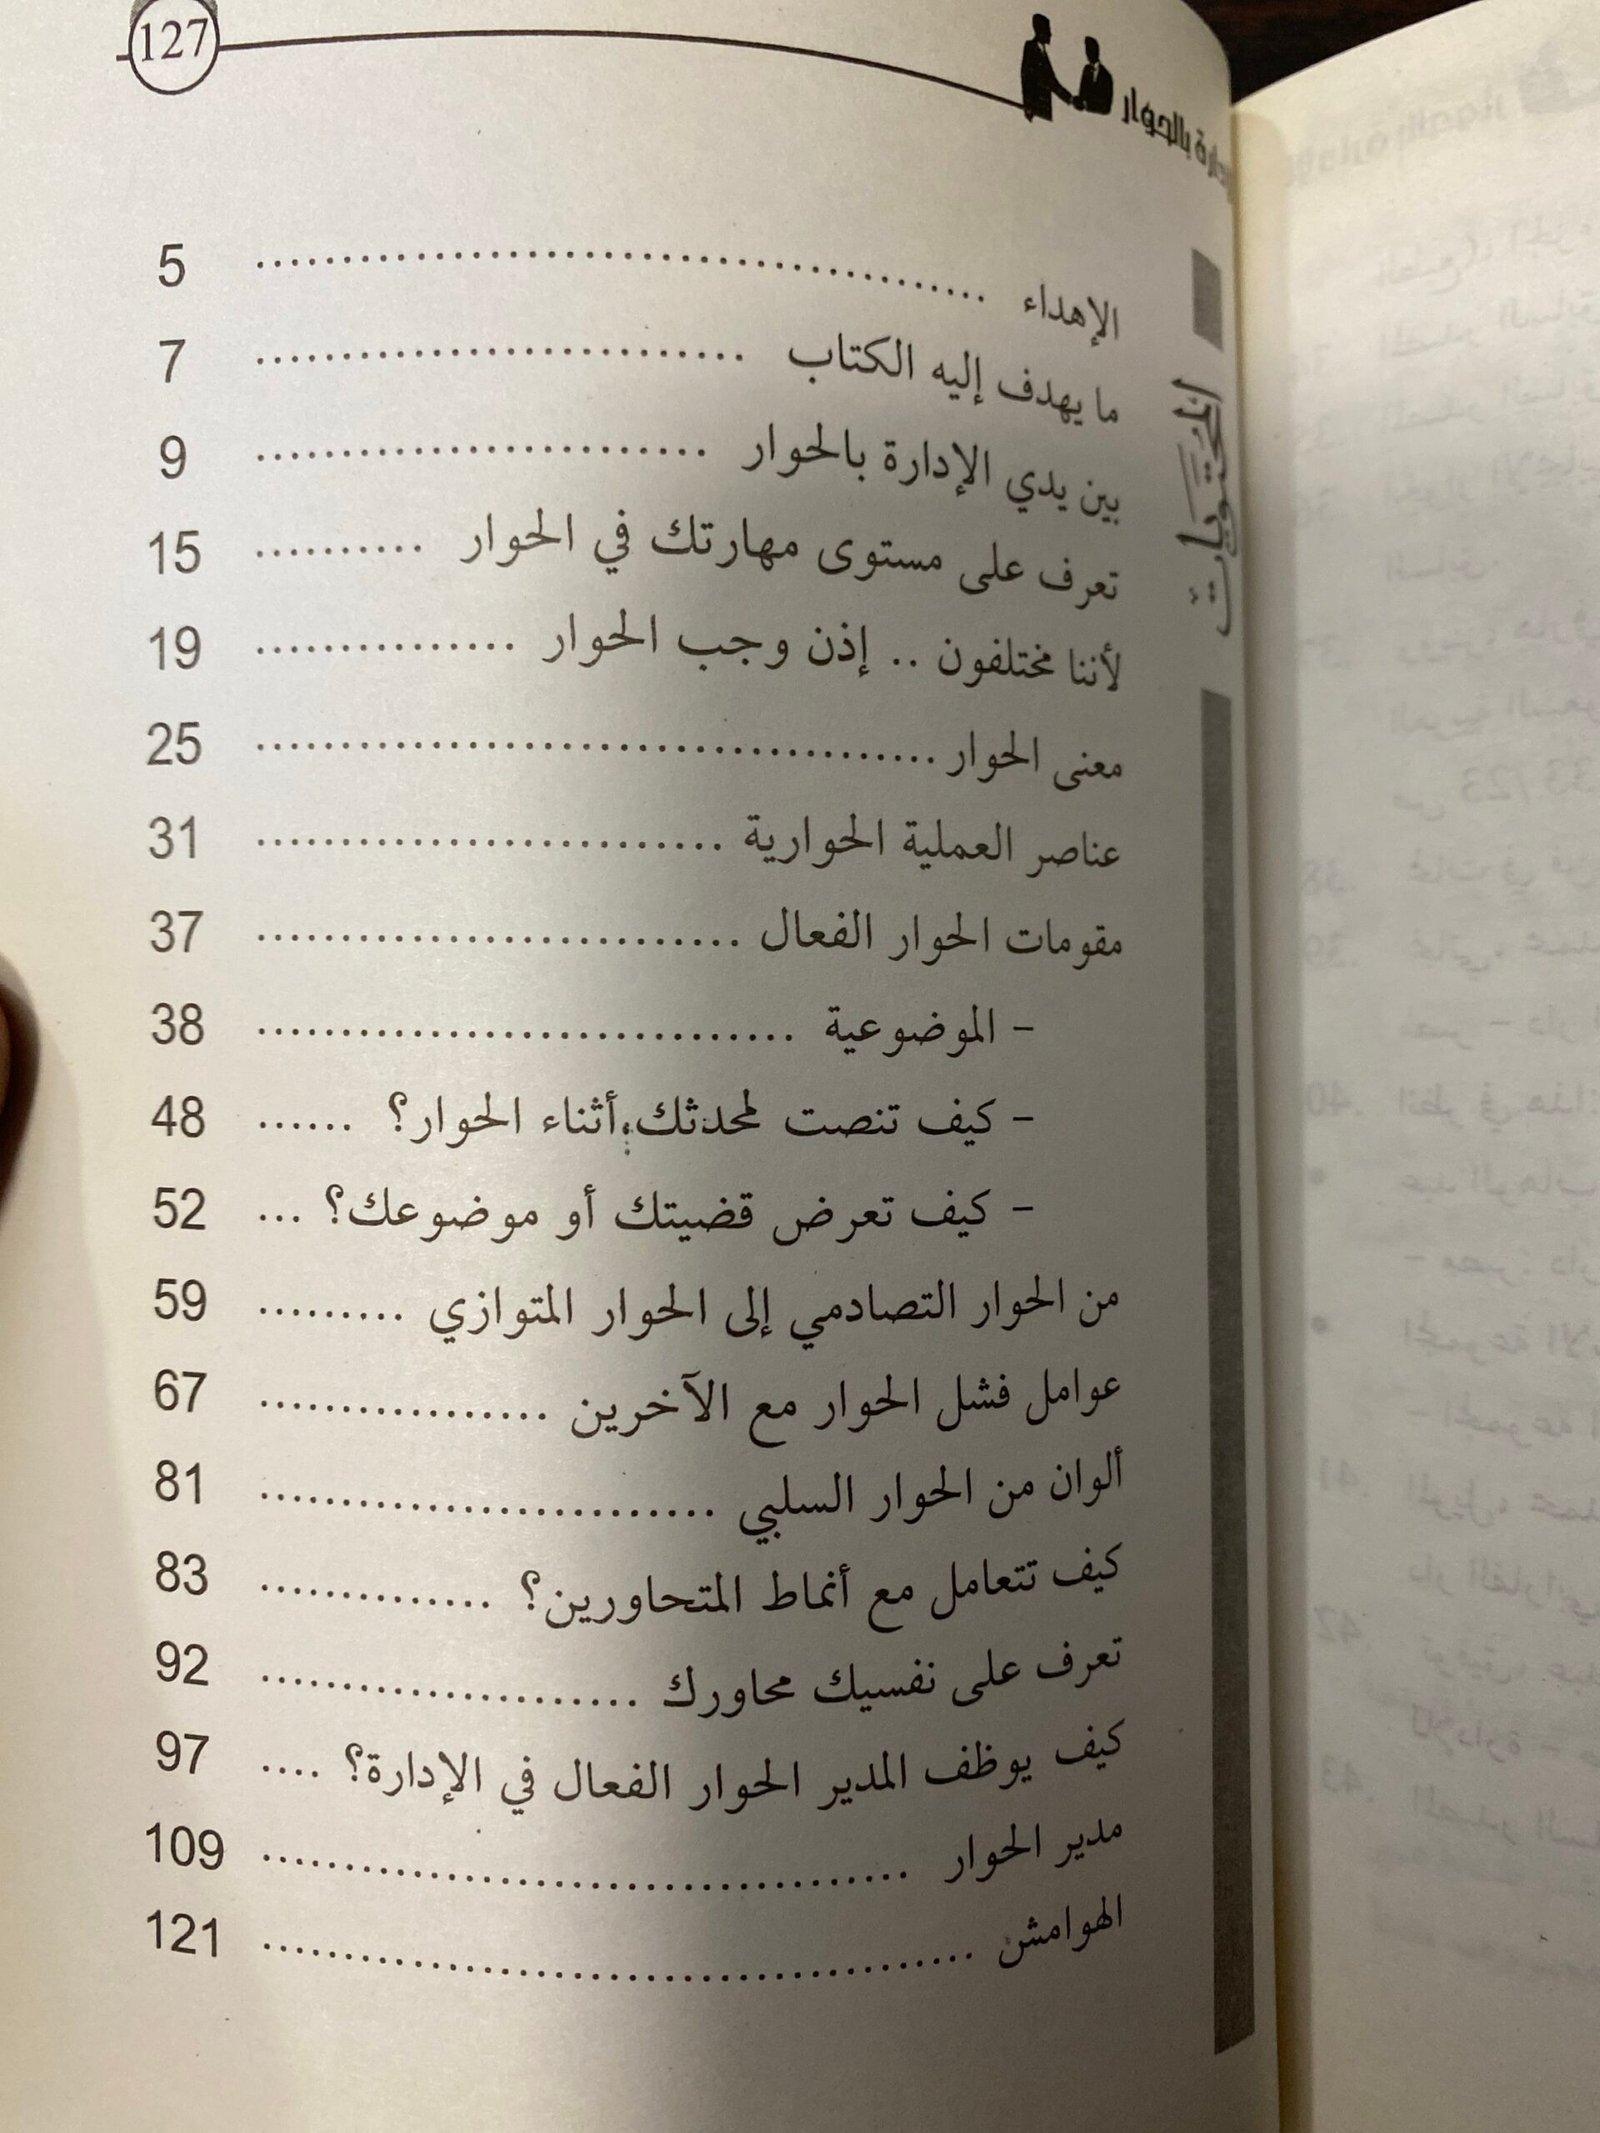 127
بالحوار
المحتويات
الإهداء ........ 5
ما يهدف إليه الكتاب ........ 7
بين يدي الإدارة بالحوار ........ 9
تعرف على مستوى مهارتك في الحوار ........ 15
لأننا مختلفون .. إذن وجب الحوار ........ 19
معنى الحوار ........ 25
عناصر العملية الحوارية ........ 31
مقومات الحوار الفعال ........ 37
- الموضوعية ........ 38
- كيف تنصت لمحدثك أثناء الحوار؟ ...... 48
- كيف تعرض قضيتك أو موضوعك؟ ... 52
من الحوار التصادمي إلى الحوار المتوازي ......... 59
عوامل فشل الحوار مع الآخرين ........ 67
ألوان من الحوار السلبي ........ 81
كيف تتعامل مع أنماط المتحاورين؟ ........ 83
تعرف على نفسيك محاورك ........ 92
كيف يوظف المدير الحوار الفعال في الإدارة؟ .... 97
مدير الحوار ........ 109
الهوامش ........ 121